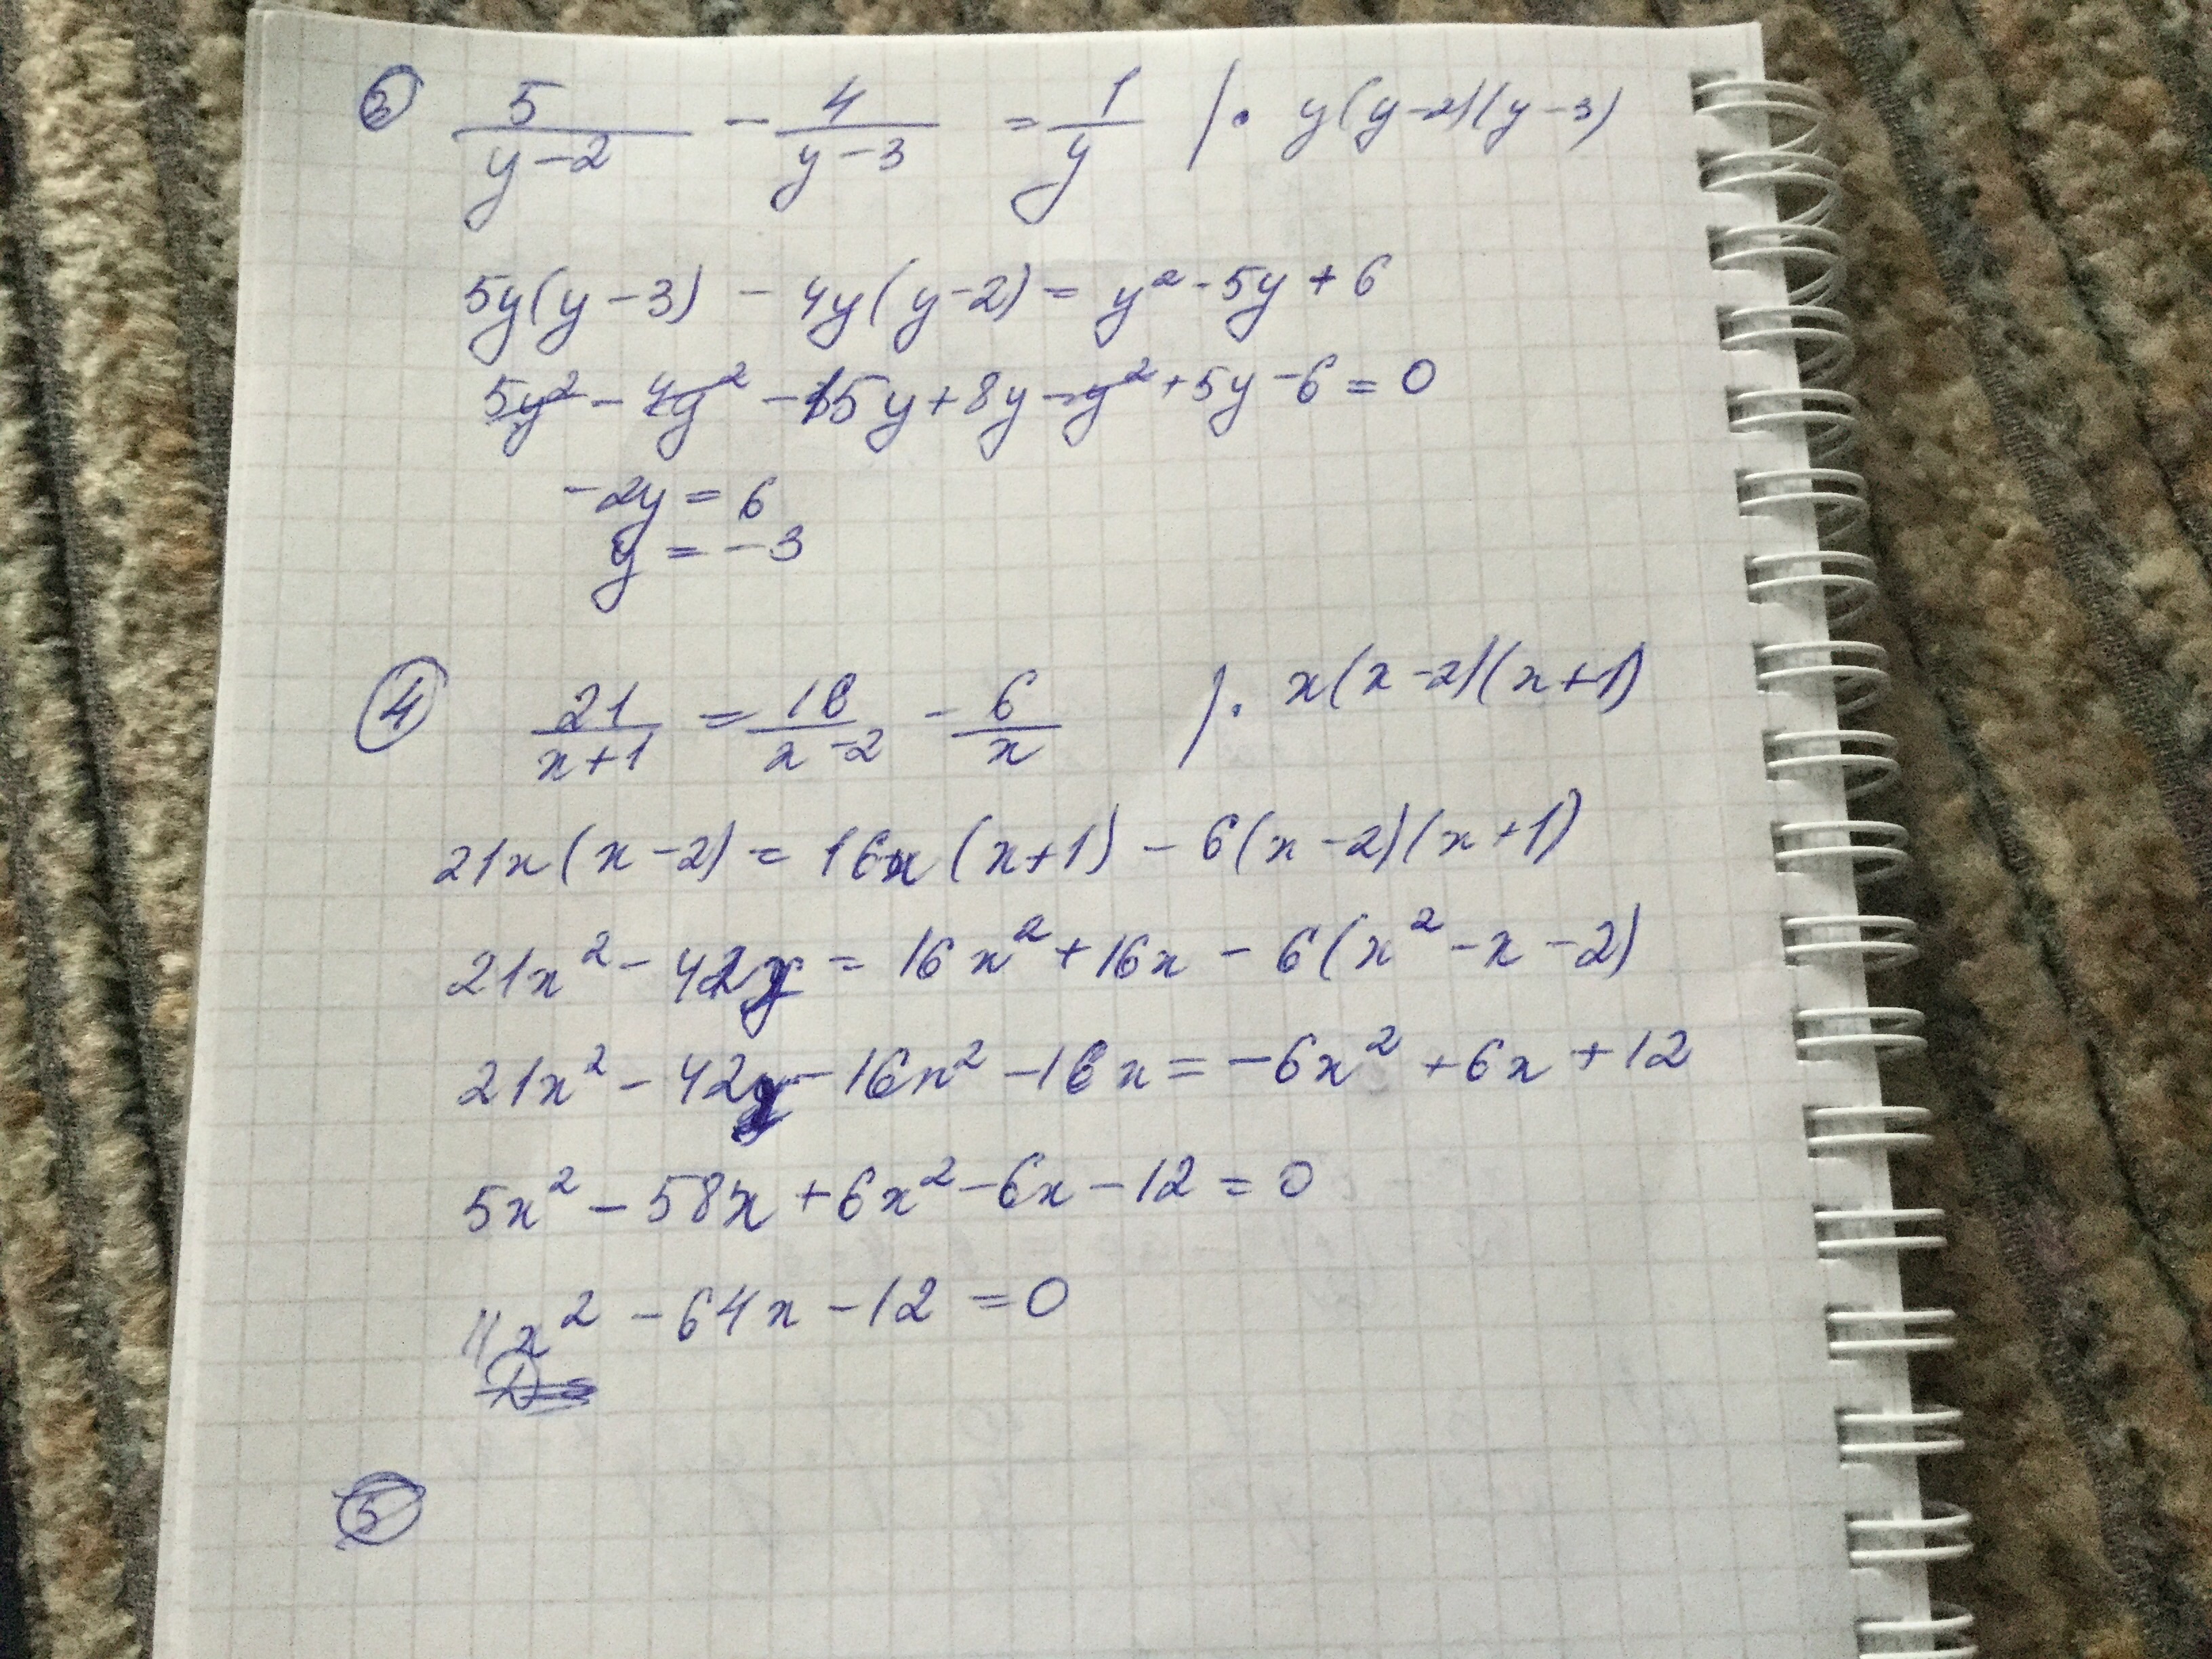 ③ 5/(y-2) - 4/(y-3) = 1/y /· y(y-2)(y-3)
5y(y-3) - 4y(y-2) = y² - 5y + 6
5y² - 4y² - 15y + 8y - y² + 5y - 6 = 0
-2y = 6
y = -3
④ 21/(x+1) = 16/(x-2) - 6/x /· x(x-2)(x+1)
21x(x-2) = 16x(x+1) - 6(x-2)(x+1)
21x² - 42x = 16x² + 16x - 6(x² - x - 2)
21x² - 42x - 16x² - 16x = -6x² + 6x + 12
5x² - 58x + 6x² - 6x - 12 = 0
11x² - 64x - 12 = 0
⑤